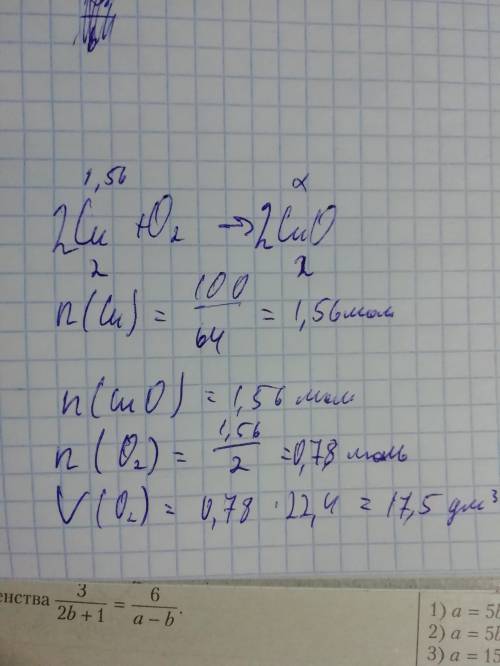 1,56 x
2Cu + O₂ → 2CuO
2 2
n(Cu) = 100/64 = 1,56 моль
n(CuO) = 1,56 моль
n(O₂) = 1,56/2 = 0,78 моль
V(O₂) = 0,78 · 22,4 = 17,5 дм³
енства 3/(2b + 1) = 6/(a − b).
1) a = 5b
2) a = 5b
3) a = 15